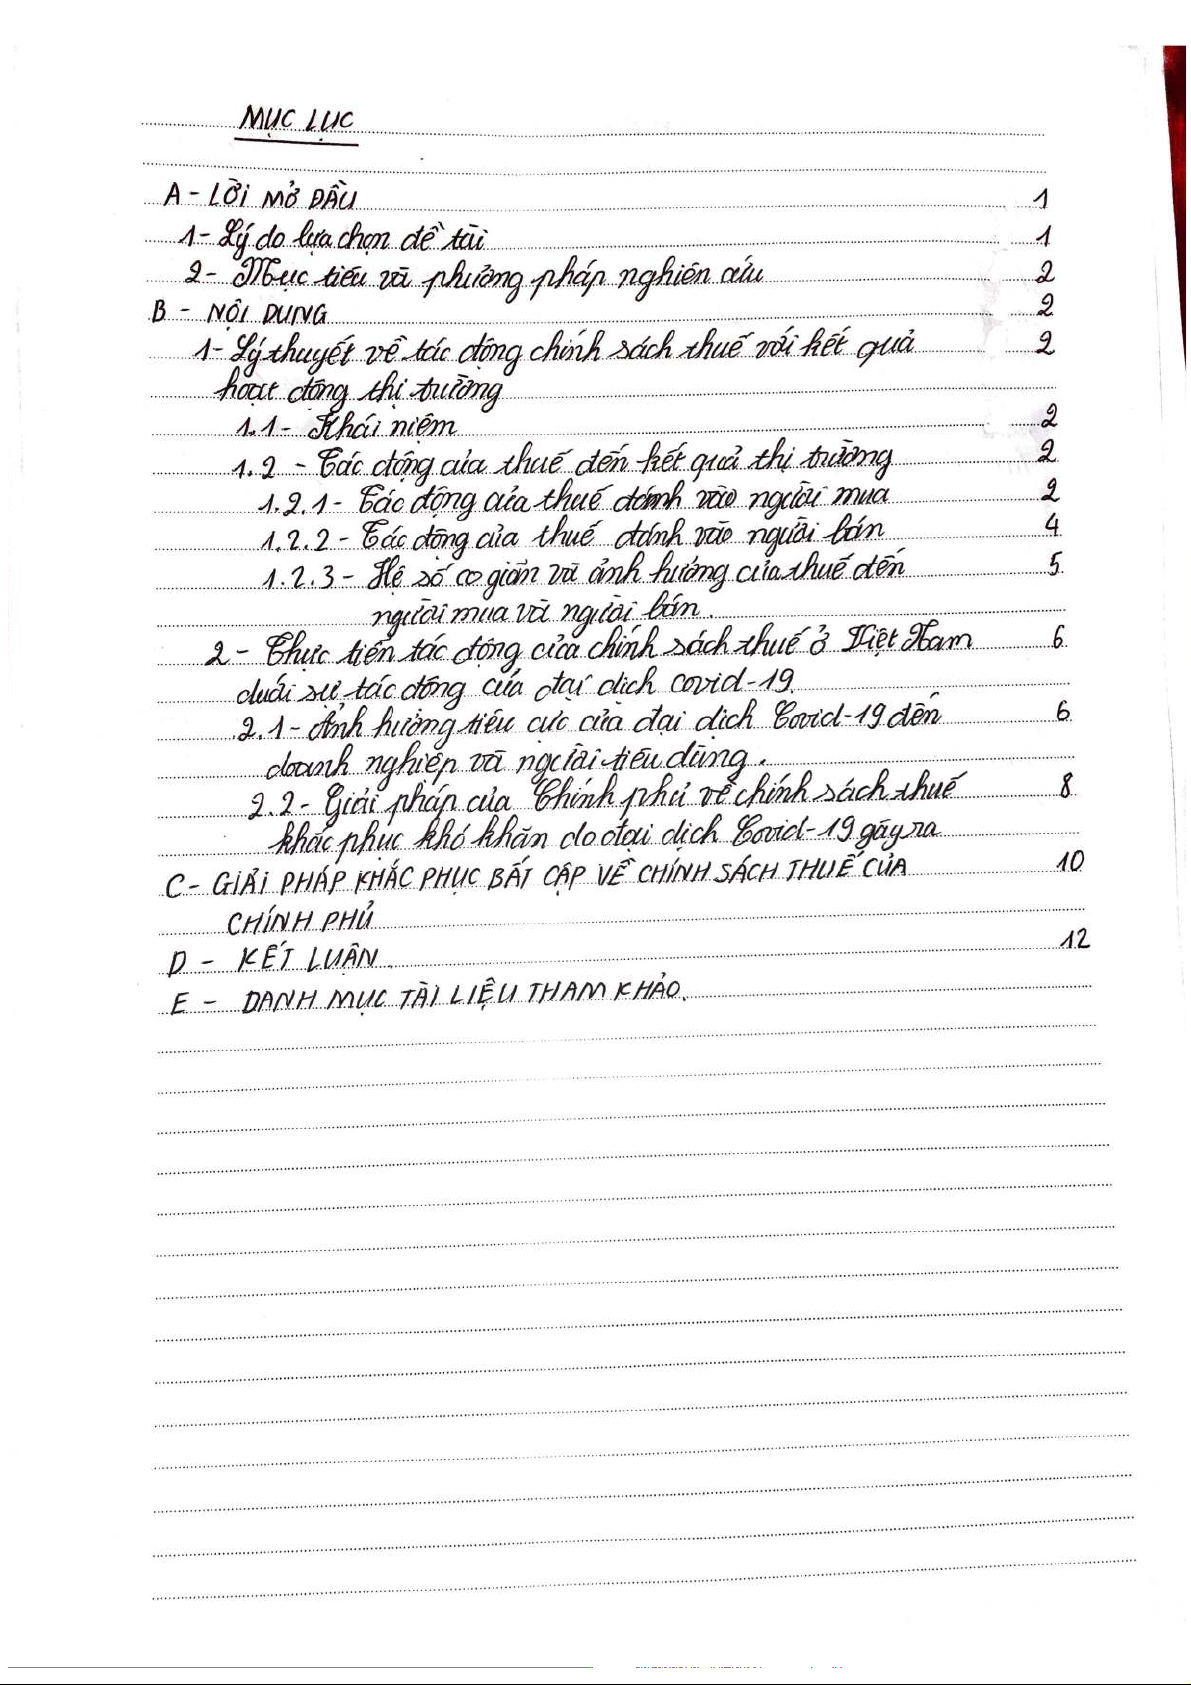 MỤC LỤC
A - LỜI MỞ ĐẦU 1
1 - Lý do lựa chọn đề tài 1
2 - Mục tiêu và phương pháp nghiên cứu 2
B - NỘI DUNG 2
1 - Lý thuyết về tác động chính sách thuế với kết quả 2
hoạt động thị trường
1.1 - Khái niệm 2
1.2 - Tác động của thuế đến kết quả thị trường 2
1.2.1 - Tác động của thuế đánh vào người mua 2
1.2.2 - Tác động của thuế đánh vào người bán 4
1.2.3 - Hệ số co giãn và ảnh hưởng của thuế đến 5
người mua và người bán.
2 - Thực tiễn tác động của chính sách thuế ở Việt Nam 6
dưới sự tác động của đại dịch covid-19.
2.1 - Ảnh hưởng tiêu cực của đại dịch Covid-19 đến 6
doanh nghiệp và người tiêu dùng.
2.2 - Giải pháp của Chính phủ về chính sách thuế 8
khắc phục khó khăn do đại dịch Covid-19 gây ra
C - GIẢI PHÁP KHẮC PHỤC BẤT CẬP VỀ CHÍNH SÁCH THUẾ CỦA 10
CHÍNH PHỦ
D - KẾT LUẬN. 12
E - DANH MỤC TÀI LIỆU THAM KHẢO.